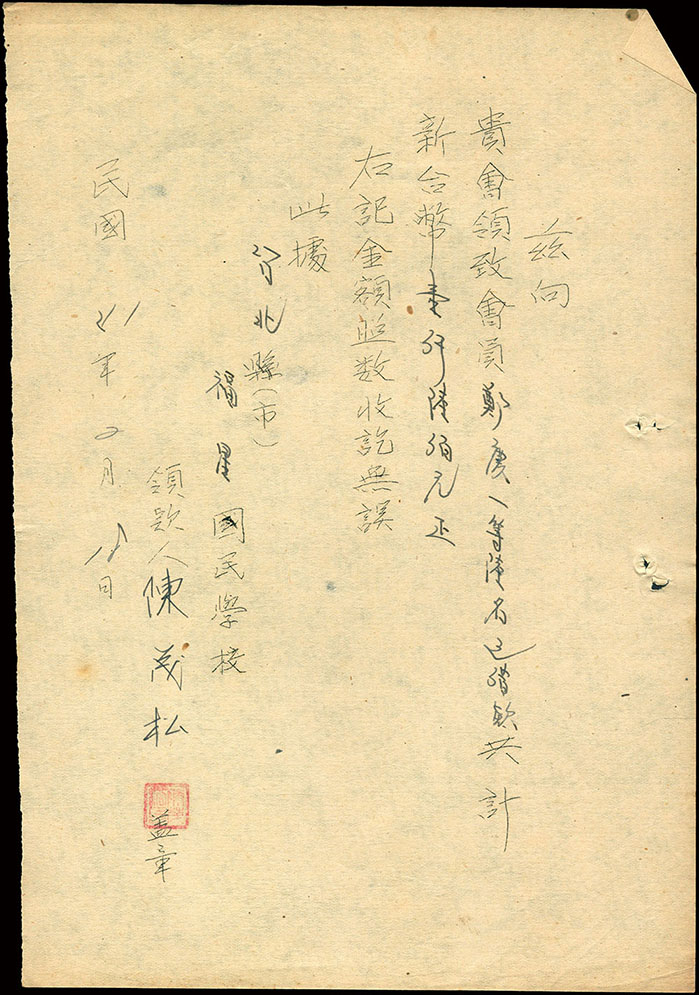 茲向
貴會領致會員鄭慶一等陸名已借款共計
新台幣壹仟陸佰元正
右記金額照数收訖無誤
此據
台北縣(市)
福星國民學校
領款人陳茂松
盖章
民國41年2月18日